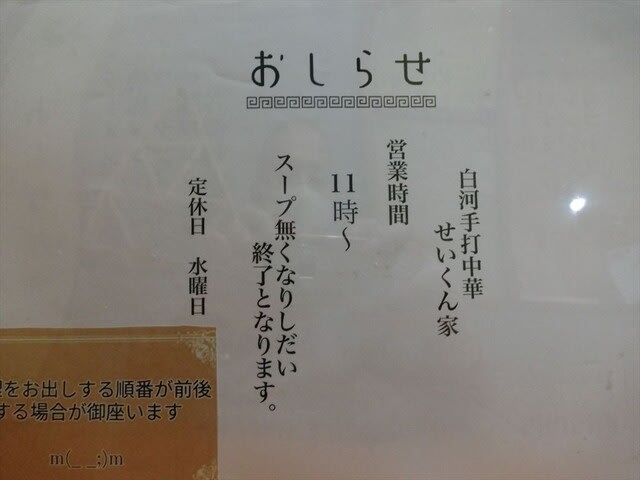 おしらせ
白河手打中華
せいくん家
営業時間
11時～
スープ無くなりしだい
終了となります。
定休日　水曜日
をお出しする順番が前後
する場合が御座います
m(_ _;)m